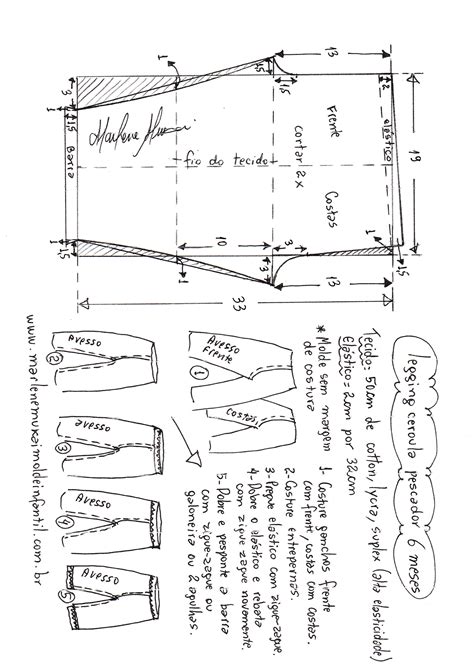 legging ceroula pescador 6 meses
Tecido= 50cm de cotton, lycra, suplex (alta elasticidade)
Elástico= 2cm por 32cm
* Molde sem margem
de costura
1- Costure ganchos frente
com frente, costas com costas.
2- Costure entrepernas.
3- Pregue elástico com zigue-zague.
4- Dobre o elástico e rebata
com zigue zague novamente.
5- Dobre e pesponte a barra
com zigue-zague ou
galoneira ou 2 agulhas.
13
1,5
1,5
2
1
3
1
1,5
Barra
Marlene Mukai
fio do tecido
Frente
Costas
cortar 2x
elástico
19
10
3
3
13
1
1,5
1
1,5
1
33
Avesso
Frente
Costas
1
Avesso
2
avesso
3
Avesso
4
Avesso
5
www.marlenemukaimoldeinfantil.com.br